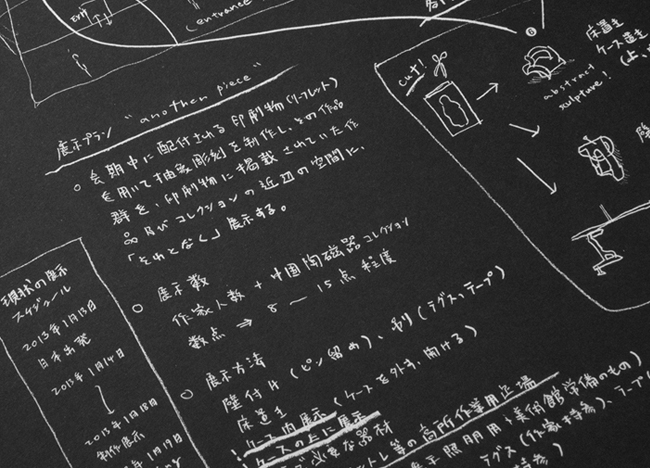 (entrance
cut!
床置き
ケース置き
abstract
sculpture!
展示プラン "another piece"
会期中に配付される印刷物(リーフレット)
を用いて抽象彫刻を制作し、その作品
群を、印刷物に掲載されていた作
品及びコレクションの近辺の空間に、
「それとなく」展示する。
展示数
作家人数 + 中国陶磁器コレクション
数点 ⇒ 8 — 15点程度
展示方法
壁付け(ピン留め)、吊り(テグス、テープ)
床置き
!ケース内展示(ケースを外す、開ける)
!ケースの上に展示
必要な器材
等の高所作業用足場
展示照明用、美術館常備のもの)
テグス(作家持参)、テープ(
現状の展示
スケジュール
2013年1月13日
日本出発
2013年1月14日
2013年1月18日
制作展示
2013年1月19日